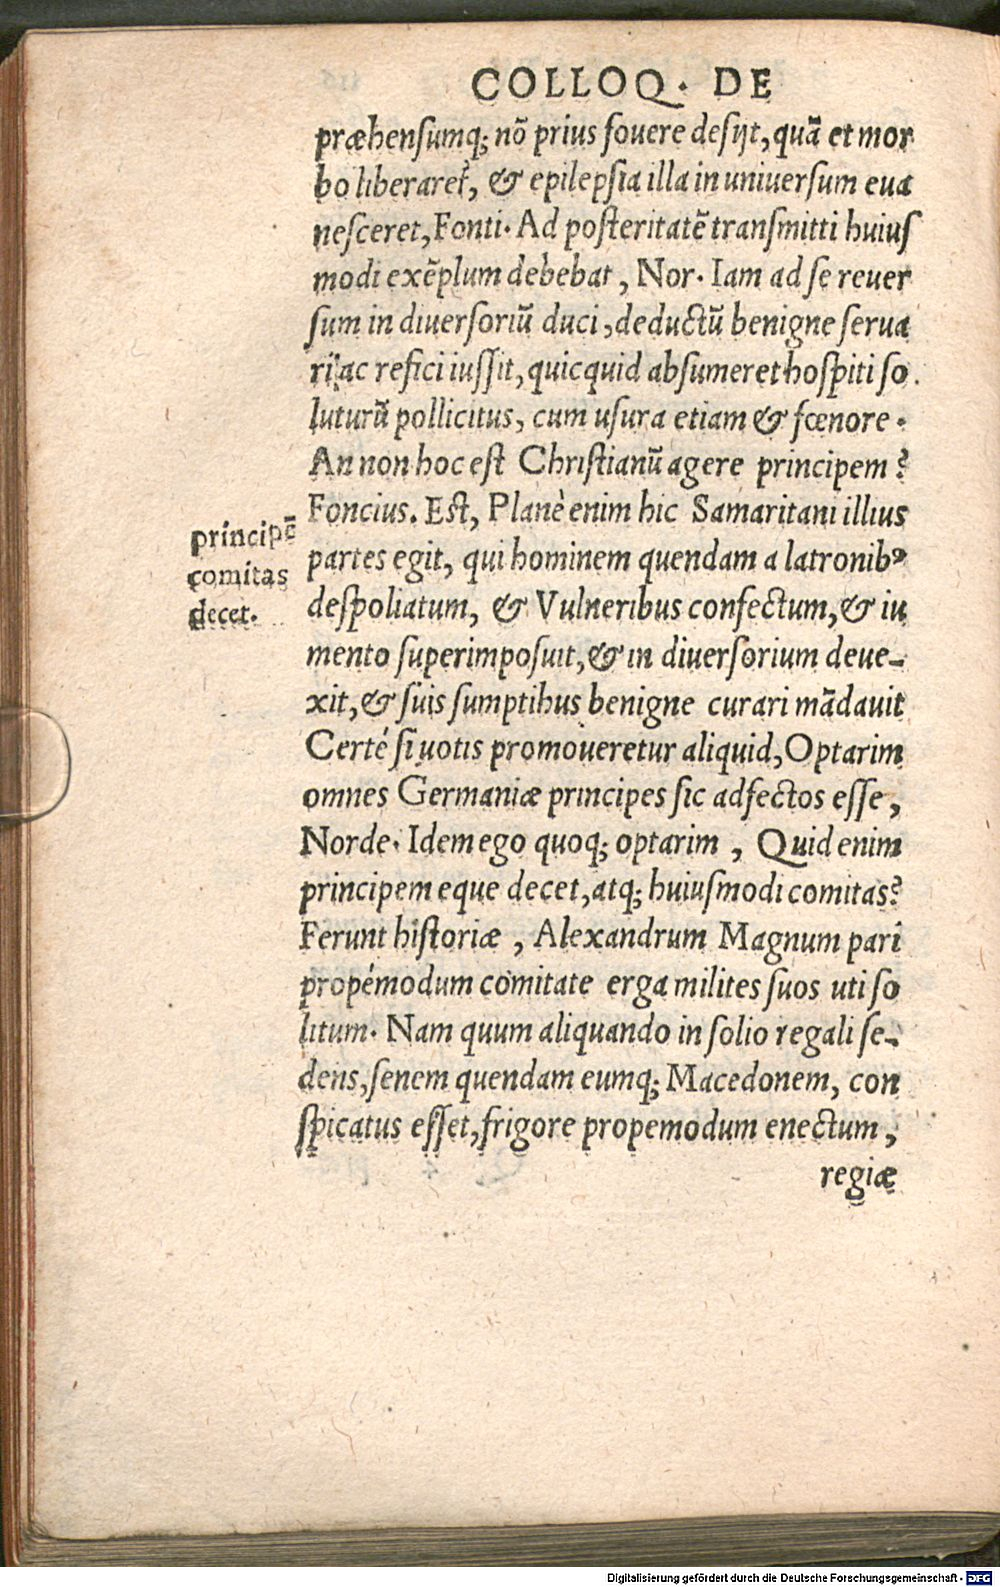 COLLOQ. DE
præhensumq; nõ prius fovere desijt, quã et mor
bo liberaret̃, & epilepsia illa in universum eva
nesceret, Fonti. Ad posteritatẽ transmitti huius
modi exẽplum debebat, Nor. Iam ad se rever
sum in diversoriũ duci, deductũ benigne serva
ri, ac refici iussit, quicquid absumeret hospiti so.
luturũ pollicitus, cum usura etiam & fœnore.
An non hoc est Christianũ agere principem?
Foncius. Est, Planè enim hic Samaritani illius
principẽ
comitas
decet.
partes egit, qui hominem quendam a latronibꝰ
despoliatum, & Vulneribus confectum, & iu
mento superimposuit, & in diversorium deve-
xit, & suis sumptibus benigne curari mãdavit
Certé si votis promoveretur aliquid, Optarim
omnes Germaniæ principes sic adfectos esse,
Norde. Idem ego quoq; optarim, Quid enim
principem eque decet, atq; huiusmodi comitas?
Ferunt historiæ, Alexandrum Magnum pari
propémodum comitate erga milites suos uti so
litum. Nam quum aliquando in solio regali se-
dens, senem quendam eumq; Macedonem, con
spicatus esset, frigore propemodum enectum,
regiæ
Digitalisierung gefördert durch die Deutsche Forschungsgemeinschaft - DFG